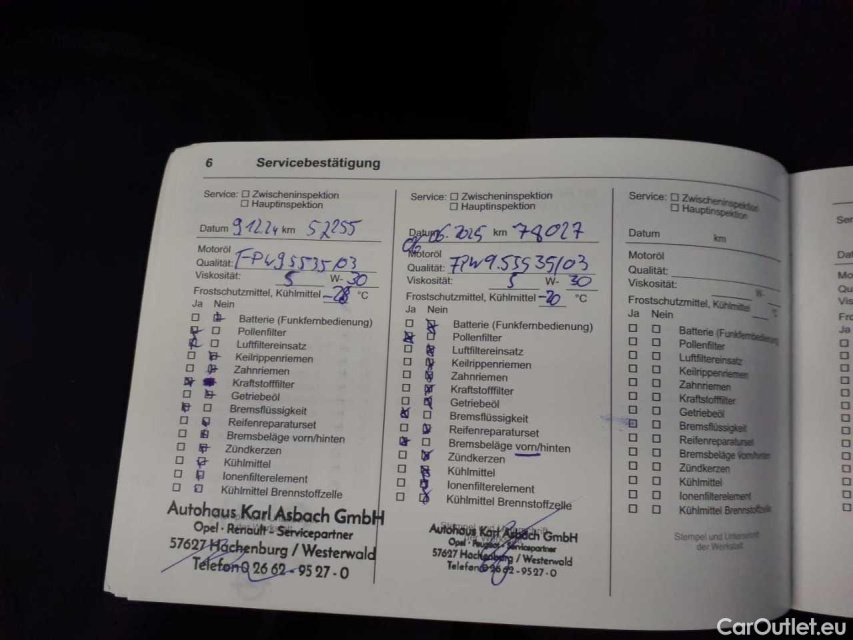 6 Servicebestätigung
Service: ☐ Zwischeninspektion
☐ Hauptinspektion
Datum 9.12.24 km 52255
Motoröl
Qualität: FPW9.55535/03
Viskosität: 5 W- 30
Frostschutzmittel, Kühlmittel -28 °C
Ja Nein
Batterie (Funkfernbedienung)
Pollenfilter
Luftfiltereinsatz
Keilrippenriemen
Zahnriemen
Kraftstofffilter
Getriebeöl
Bremsflüssigkeit
Reifenreparaturset
Bremsbeläge vorn/hinten
Zündkerzen
Kühlmittel
Ionenfilterelement
Kühlmittel Brennstoffzelle
Autohaus Karl Asbach GmbH
Opel · Renault · Servicepartner
57627 Hachenburg / Westerwald
Telefon 0 26 62 - 95 27 - 0
Service: ☐ Zwischeninspektion
☐ Hauptinspektion
Datum 06.06.2025 km 78027
Motoröl
Qualität: FPW9.55535/03
Viskosität: 5 W- 30
Frostschutzmittel, Kühlmittel -20 °C
Ja Nein
Batterie (Funkfernbedienung)
Pollenfilter
Luftfiltereinsatz
Keilrippenriemen
Zahnriemen
Kraftstofffilter
Getriebeöl
Bremsflüssigkeit
Reifenreparaturset
Bremsbeläge vorn/hinten
Zündkerzen
Kühlmittel
Ionenfilterelement
Kühlmittel Brennstoffzelle
Autohaus Karl Asbach GmbH
Opel · Peugeot · Servicepartner
57627 Hachenburg / Westerwald
Telefon 0 26 62 - 95 27 - 0
Service: ☐ Zwischeninspektion
☐ Hauptinspektion
Datum km
Motoröl
Qualität:
Viskosität: W-
Frostschutzmittel, Kühlmittel °C
Ja Nein
Batterie (Funkfernbedienung)
Pollenfilter
Luftfiltereinsatz
Keilrippenriemen
Zahnriemen
Kraftstofffilter
Getriebeöl
Bremsflüssigkeit
Reifenreparaturset
Bremsbeläge vorn/hinten
Zündkerzen
Kühlmittel
Ionenfilterelement
Kühlmittel Brennstoffzelle
Stempel und Unterschrift
der Werkstatt
CarOutlet.eu